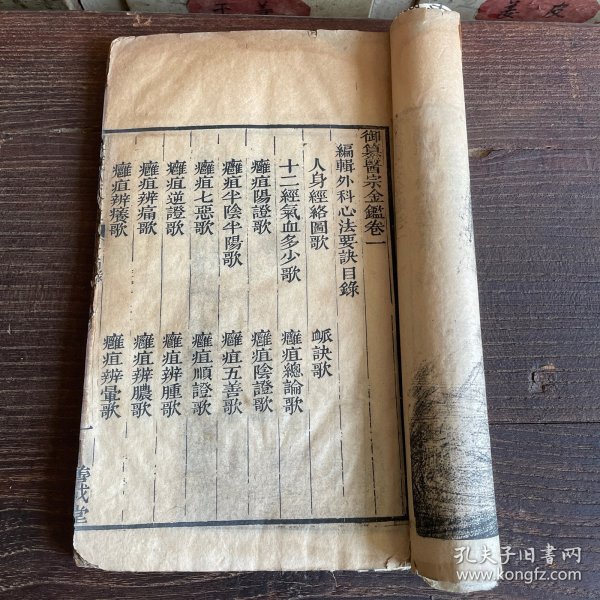 御纂醫宗金鑑卷一
編輯外科心法要訣目錄
人身經絡圖歌 衇訣歌
十二經氣血多少歌 癰疽總論歌
癰疽陽證歌 癰疽陰證歌
癰疽半陰半陽歌 癰疽五善歌
癰疽七惡歌 癰疽順證歌
癰疽逆證歌 癰疽辨腫歌
癰疽辨痛歌 癰疽辨膿歌
癰疽辨癢歌 癰疽辨暈歌
一
孔夫子旧书网
www.kongfz.com